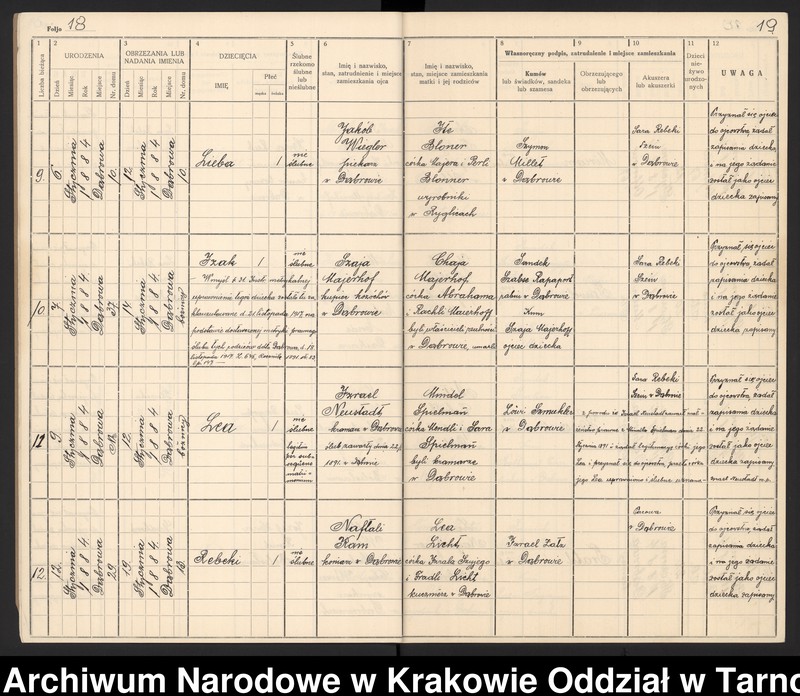 Foljo 18
19
1 2 3 4 5 6 7 8 9 10 11 12
Liczba bieżąca
URODZENIA
Dzień Miesiąc Rok Miejsce Nr. domu
OBRZEZANIA LUB NADANIA IMIENIA
Dzień Miesiąc Rok Miejsce Nr. domu
DZIECIĘCIA
IMIĘ
Płeć
męska żeńska
Ślubne rzekomo ślubne lub nieślubne
Imię i nazwisko, stan, zatrudnienie i miejsce zamieszkania ojca
Imię i nazwisko, stan, miejsce zamieszkania matki i jej rodziców
Własnoręczny podpis, zatrudnienie i miejsce zamieszkania
Kumów lub świadków, sandeka lub szamesa
Obrzezującego lub obrzezujących
Akuszera lub akuszerki
Dzieci nieżywo urodzonych
UWAGA
9.
6. Stycznia 1884 Dąbrowa 10.
12. Stycznia 1884 Dąbrowa 10.
Lieba
1
nie ślubne
Jakób
Wiegler
piekarz
w Dąbrowie
Ite
Bloner
córka Majera i Perli
Blonner
wyrobniki
w Ryglicach
Szymon
Millet
w Dąbrowie
Sara Rebeki
Szein
w Dąbrowie
Przyznał się ojciec
do ojcostwa, żądał
zapisania dziecka
i na jego żądanie
został jako ojciec
dziecka zapisany
10.
7. Stycznia 1884 Dąbrowa 37.
14. Stycznia 1884 Dąbrowa bóżnicy
Izak
1
nie ślubne
W myśl
uprawnienie tego dziecka
d. 21 listopada 1917
podstawie
ślubu tych rodziców
listopada 1917
Szaja
Majerhof
kupiec
w Dąbrowie
Chaja
Majerhof
córka Abrahama
i Rachli Mauerhoff
byli właściciele realności
w Dąbrowie, umarli
Sandek
Szabse Rapaport
rabin w Dąbrowie
Kum
Szaja Majerhoff
ojciec dziecka
Sara Rebeki
Szein
w Dąbrowie
Przyznał się ojciec
do ojcostwa, żądał
zapisania dziecka
i na jego żądanie
został jako ojciec
dziecka zapisany
11
9. Stycznia 1884 Dąbrowa
12. Stycznia 1884 Dąbrowa bóżnicy
Lea
1
nie ślubne
per subsequens matrimonium
Izrael
Neustadt
kramarz w Dąbrowie
ślub zawarty dnia 22/1
1891. w Dąbrowie
Mindel
Spielman
córka Mendli i Sara
Spielman
byli kramarze
w Dąbrowie
Löwi Szmukler
w Dąbrowie
z powodu iż Izrael Neustadt zawarł
Stycznia 1891 i żądał legitymacyi córki jego
Lea i przyznał się do ojcostwa, przeto
jego Lea uprawniono i ślubne uznano
Sara Rebeki
Szein w Dąbrowie
Przyznał się ojciec
do ojcostwa, żądał
zapisania dziecka
i na jego żądanie
został jako ojciec
dziecka zapisany
Izrael Neustadt
12.
12. Stycznia 1884 Dąbrowa 29.
19. Stycznia 1884 Dąbrowa
Rebeki
1
nie ślubne
Naftali
Kam
w Dąbrowie
Lea
Licht
i Fradli Licht
w Dąbrowie
Izrael Załz
w Dąbrowie
w Dąbrowie
Przyznał się ojciec
do ojcostwa, żądał
zapisania dziecka
i na jego żądanie
został jako ojciec
dziecka zapisany
Archiwum Narodowe w Krakowie Oddział w Tarno